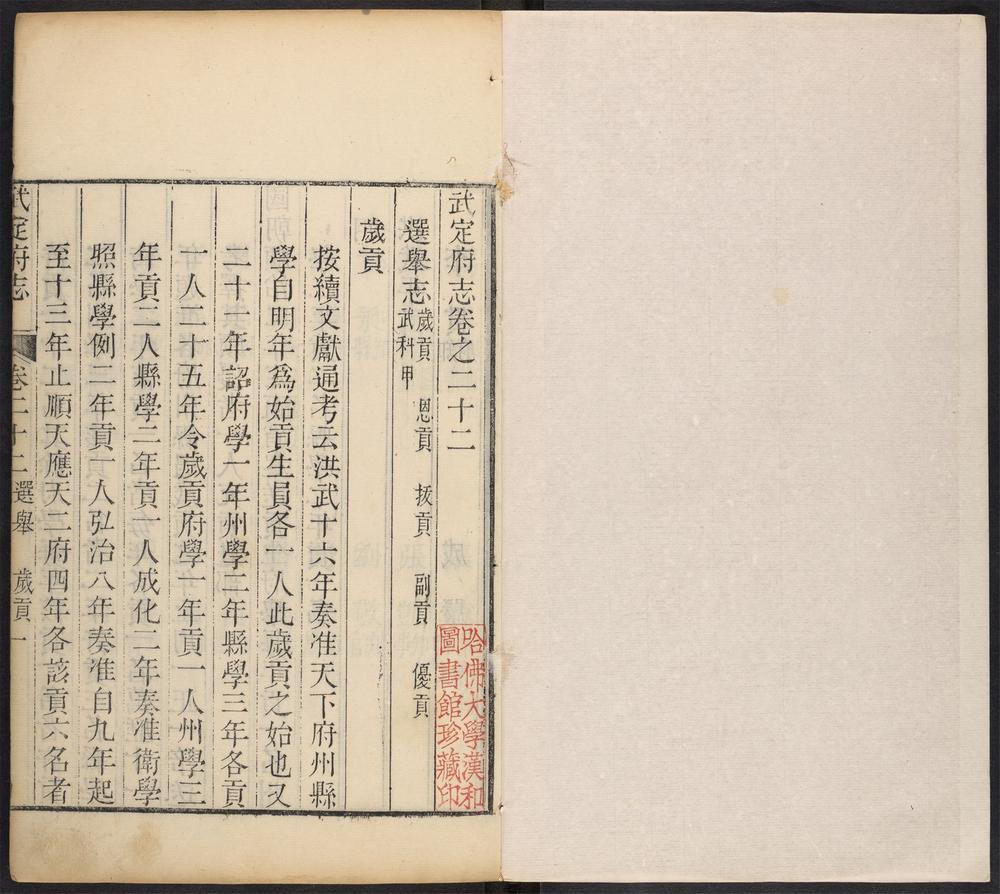 武定府志卷之二十二
選舉志歲貢 恩貢 拔貢 副貢 優貢
武科甲
歲貢
按續文獻通考云洪武十六年奏准天下府州縣
學自明年爲始貢生員各一人此歲貢之始也又
二十一年詔府學一年州學二年縣學三年各貢
一人二十五年令歲貢府學一年貢一人州學三
年貢二人縣學二年貢一人成化二年奏准衛學
照縣學例二年貢一人弘治八年奏准自九年起
至十三年止順天應天二府四年各該貢六名者
武定府志 卷二十二選舉 歲貢一
哈佛大學漢和
圖書館珍藏印